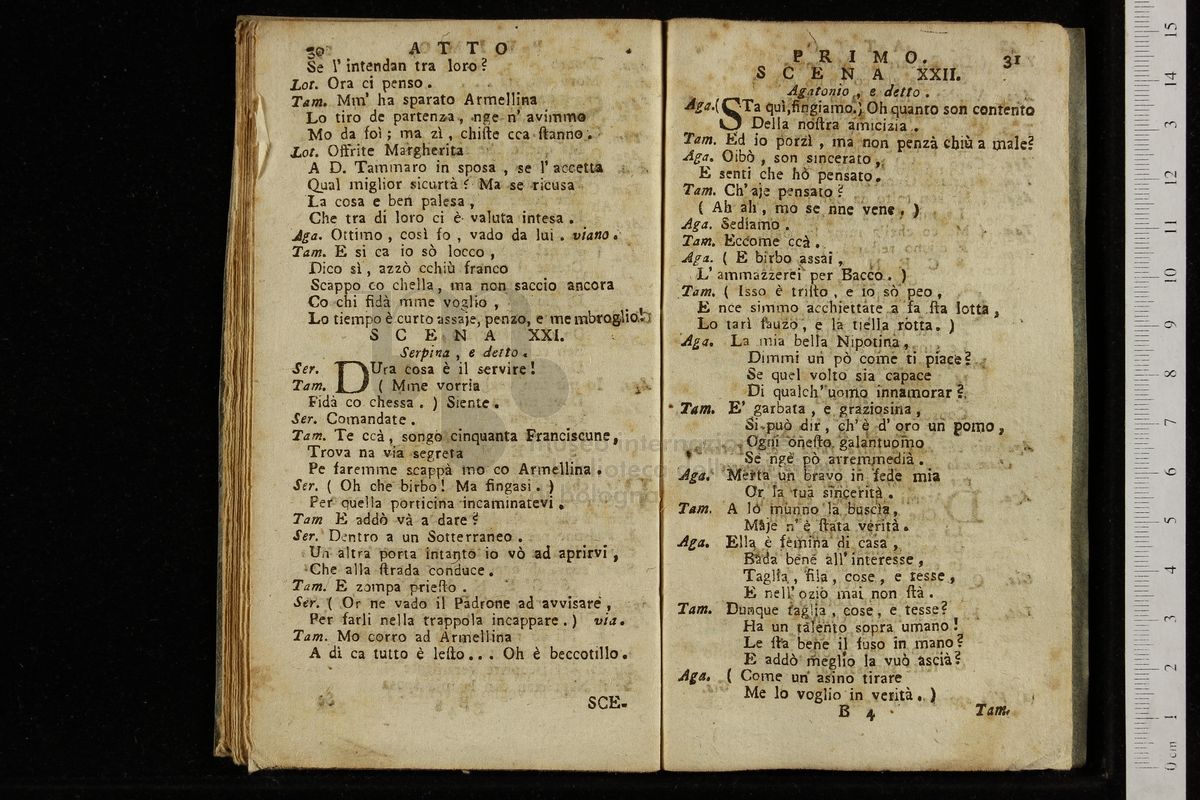 30 ATTO
Se l' intendan tra loro?
Lot. Ora ci penso.
Tam. Mm' ha sparato Armellina
Lo tiro de partenza, nge n' avimmo
Mo da foì; ma zì, chiste cca stanno.
Lot. Offrite Margherita
A D. Tammaro in sposa, se l' accetta
Qual miglior sicurtà? Ma se ricusa
La cosa e ben palesa,
Che tra di loro ci è valuta intesa.
Aga. Ottimo, così fo, vado da lui. viano.
Tam. E si ca io sò locco,
Dico sì, azzò cchiù franco
Scappo co chella, ma non saccio ancora
Co chi fidà mme voglio,
Lo tiempo è curto assaje, penzo, e me mbroglio!
SCENA XXI.
Serpina, e detto.
Ser. DUra cosa è il servire!
Tam. ( Mme vorria
Fidà co chessa. ) Siente.
Ser. Comandate.
Tam. Te ccà, songo cinquanta Franciscune,
Trova na via segreta
Pe faremme scappà mo co Armellina.
Ser. ( Oh che birbo! Ma fingasi. )
Per quella porticina incaminatevi.
Tam E addò và a dare?
Ser. Dentro a un Sotterraneo.
Un altra porta intanto io vò ad aprirvi,
Che alla strada conduce.
Tam. E zompa priesto.
Ser. ( Or ne vado il Padrone ad avvisare,
Per farli nella trappola incappare. ) via.
Tam. Mo corro ad Armellina
A dì ca tutto è lesto... Oh è beccotillo.
SCE-
PRIMO. 31
SCENA XXII.
Agatonio, e detto.
Aga. ( STa quì, fingiamo. ) Oh quanto son contento
Della nostra amicizia.
Tam. Ed io porzì, ma non penzà chiù a male?
Aga. Oibò, son sincerato,
E senti che hò pensato.
Tam. Ch' aje pensato?
( Ah ah, mo se nne vene, )
Aga. Sediamo.
Tam. Eccome ccà.
Aga. ( E birbo assai,
L' ammazzerei per Bacco. )
Tam. ( Isso è tristo, e io sò peo,
E nce simmo acchiettate a fa sta lotta,
Lo tarì fauzo, e la tiella rotta. )
Aga. La mia bella Nipotina,
Dimmi un pò come ti piace?
Se quel volto sia capace
Di qualch' uomo innamorar?
Tam. E' garbata, e graziosina,
Si può dir, ch'è d' oro un pomo,
Ogni onesto galantuomo
Se nge pò arremmedià.
Aga. Merta un bravo in fede mia
Or la tua sincerità.
Tam. A lo munno la buscìa,
Maje n' è stata verità.
Aga. Ella è femina di casa,
Bada bene all' interesse,
Taglia, fila, cose, e tesse,
E nell' ozio mai non stà.
Tam. Dunque taglia, cose, e tesse?
Ha un talento sopra umano!
Le sta bene il fuso in mano?
E addò meglio la vuò ascià?
Aga. ( Come un asino tirare
Me lo voglio in verità. )
B 4 Tam.